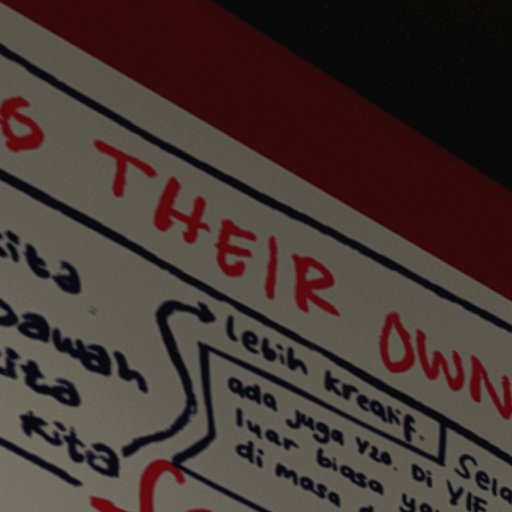 G THEIR OWN
kita
bawah
kita
kita
lebih kreatif.
ada juga yzo. Di YIF
luar biasa
di masa